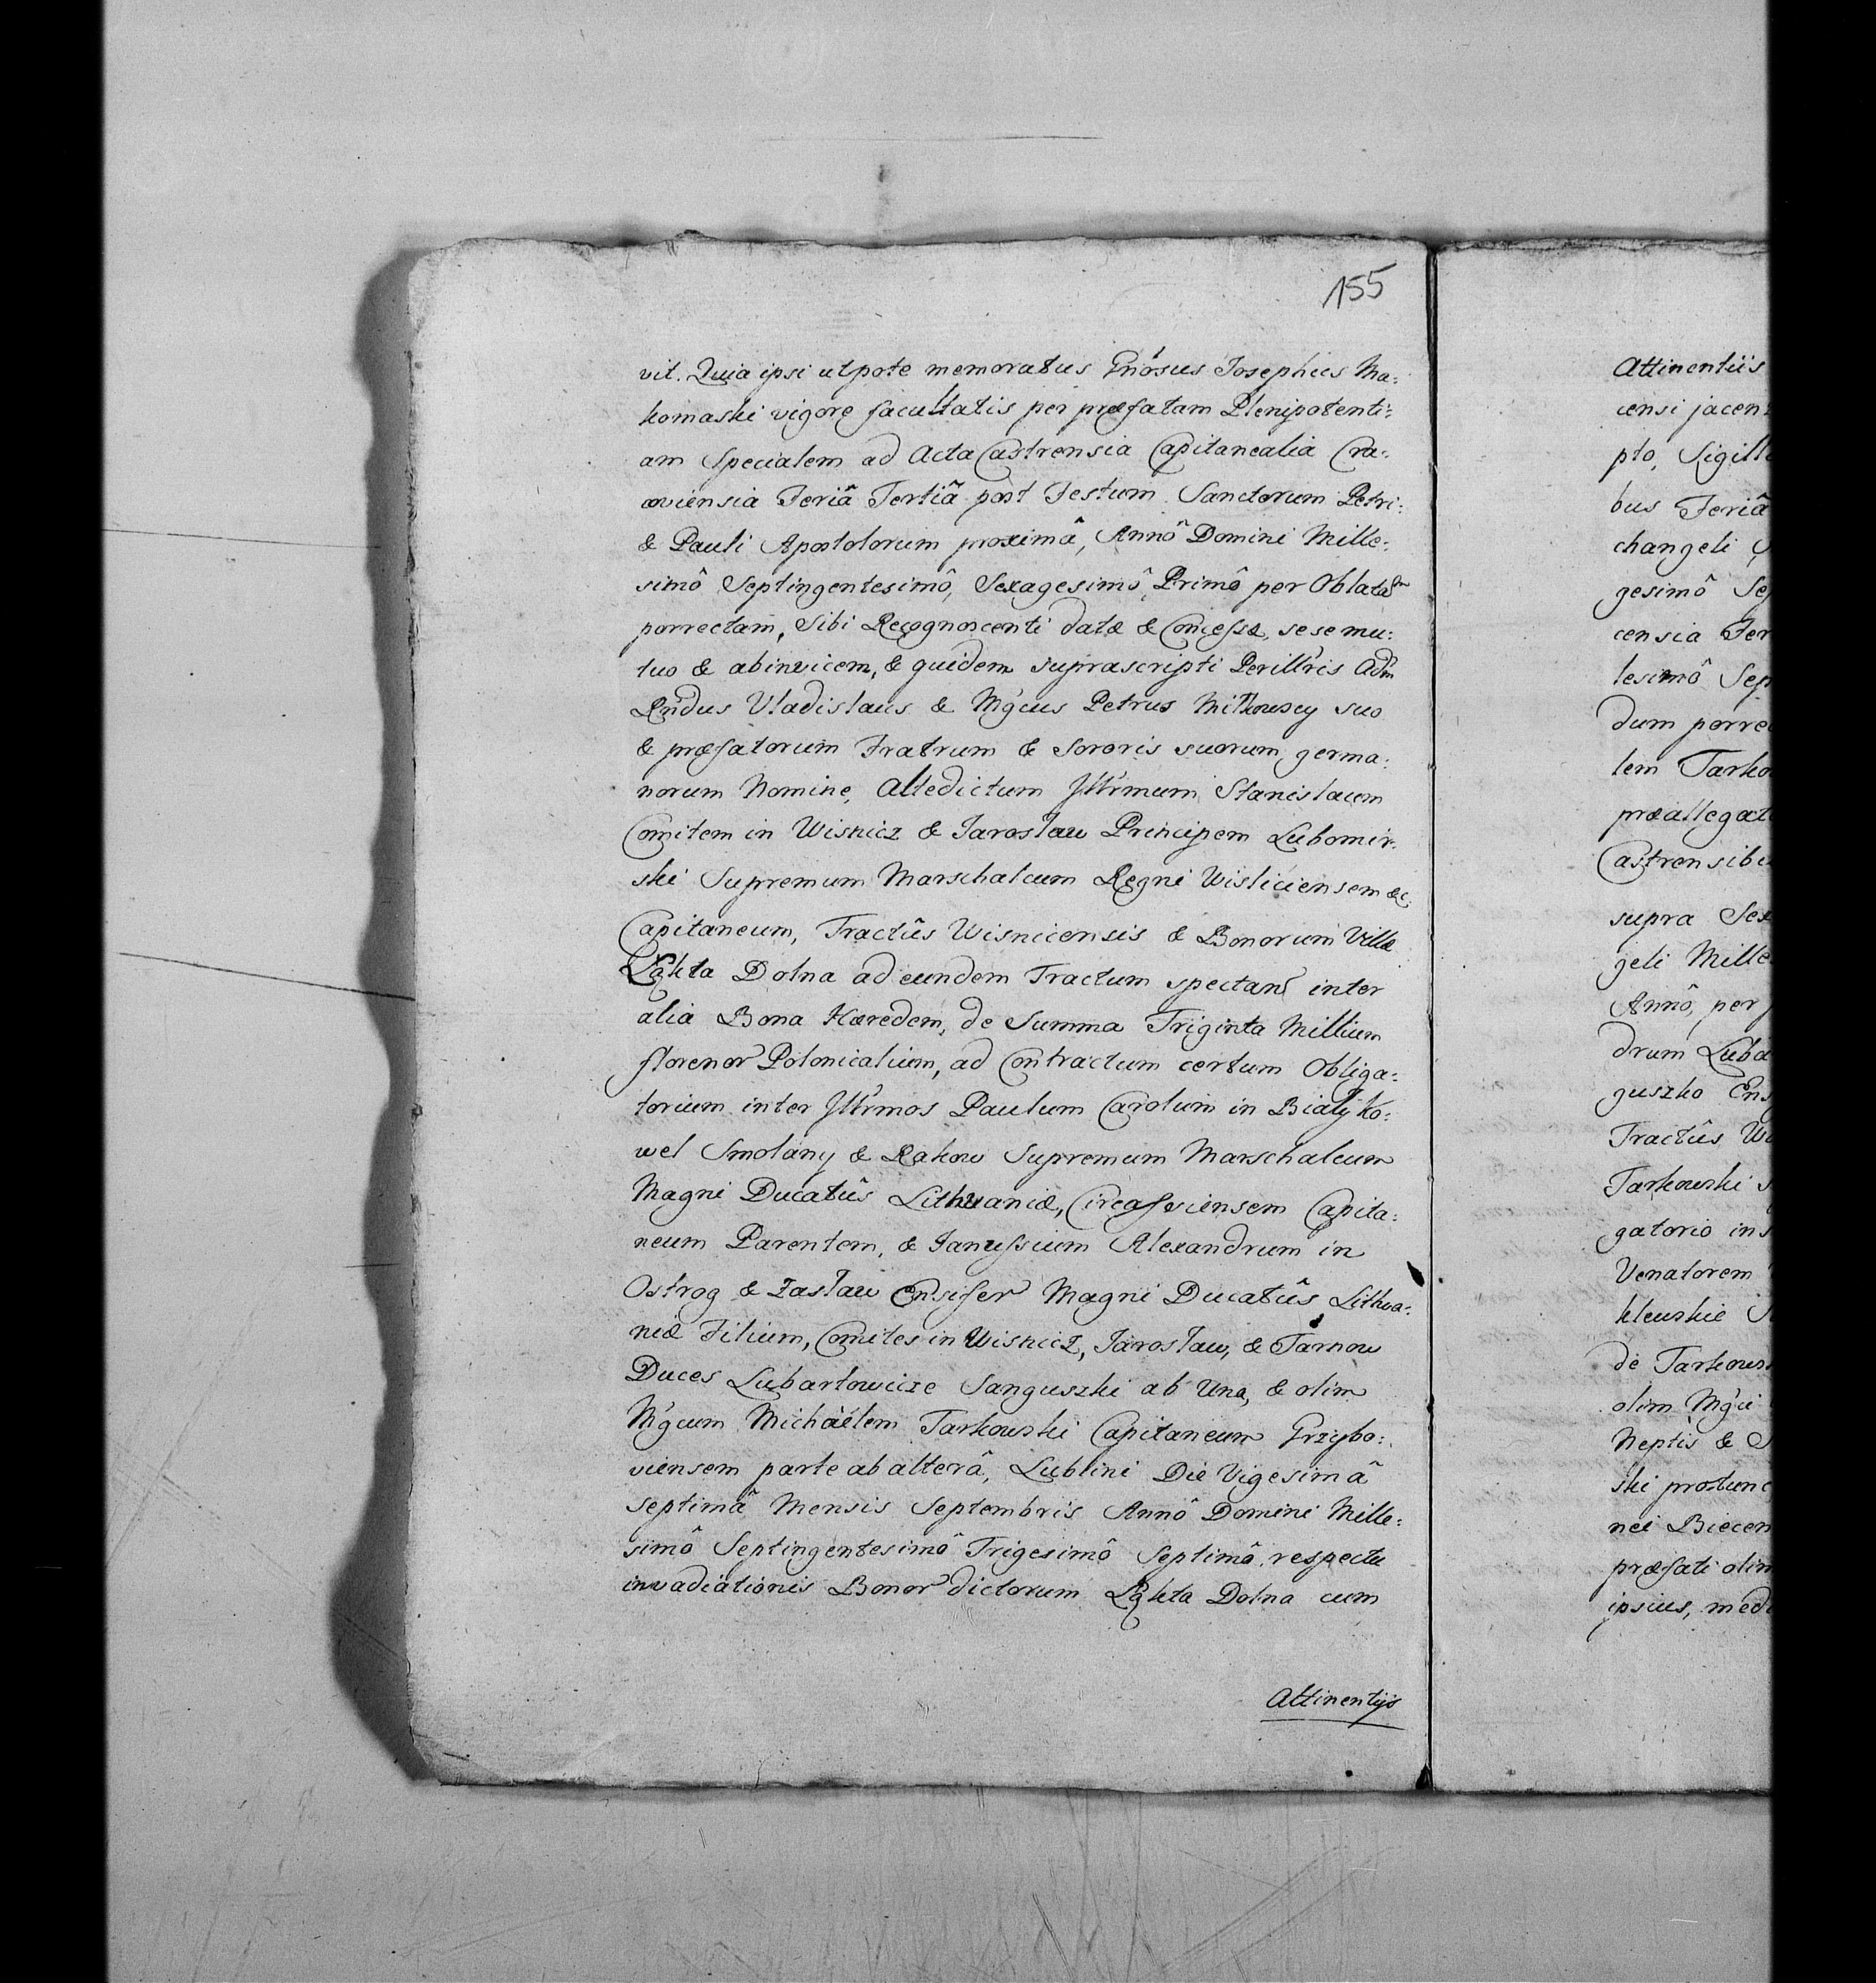 155
vit. Quia ipsi utpote memoratus Gnosus Josephus Ma:
komaski vigore facultatis per præfatam Plenipotenti:
am Specialem ad Acta Castrensia Capitanealia Cra:
coviensia Feriâ Tertiâ post Festum Sanctorum Petri:
& Pauli Apostolorum proximâ, Annô Domini Mille:
simô Septingentesimô, Sexagesimô, Primô per Oblatam
porrectam, sibi Recognoscenti datæ & Concessæ, sese mu:
tuo & abinvicem, & quidem suprascripti Perillris Adm
Rndus Vladislaus & Mgcus Petrus Mitkowscy suo
& præfatorum Fratrum & Sororis suorum germa:
norum Nomine, Altedictum Jllrmum Stanislaum
Comitem in Wisnicz & Jaroslaw Principem Lubomir:
ski Supremum Marschalcum Regni Wisliciensem &c.
Capitaneum, Tractûs Wisnicensis & Bonorum Villæ
Łąkta Dolna ad eundem Tractum spectan inter
alia Bona Hæredem, de Summa Triginta Millium
florenor Polonicalium, ad Contractum certum Obliga:
torium inter Jllrmos Paulum Carolum in Biały Ko:
wel Smolany & Rakow Supremum Marschalcum
Magni Ducatûs Lithvaniæ, Circassiensem Capita:
neum Parentem, & Janussium Alexandrum in
Ostrog & Zasław Ensifer Magni Ducatûs Lithva:
niæ Filium, Comites in Wisnicz, Jarosław, & Tarnow
Duces Lubartowicze Sanguszki ab Una, & olim
Mgcum Michaëlem Tarkowski Capitaneum Grzybo:
viensem parte ab alterâ, Lublini Die Vigesimâ
septimâ Mensis Septembris Annô Domini Mille:
simô Septingentesimô Trigesimô Septimô respectu
invadiationis Bonor dictorum Łąkta Dolna cum
Attinentijs
Attinentiis
censi jacen
pto, Sigill
bus Feriâ
changeli
gesimô Sep
censia Fer
lesimô Sep
dum porre
tem Tarko
præallegat
Castrensib
supra Sex
geli Mille
Annô, per
drum Luba
guszko Ens
Tractûs W
Tarkowski
gatorio in
Venatorem
kleuskie
de Tarkows
olim Mgci
Neptis & S
ski protunc
nei Biecen
præfati olim
ipsius, medi